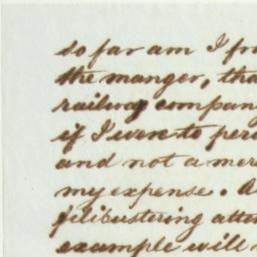 so far am I fro
the manger, tha
railway compan
if I were to per
and not a mer
my expense. A
filibustering atte
example will